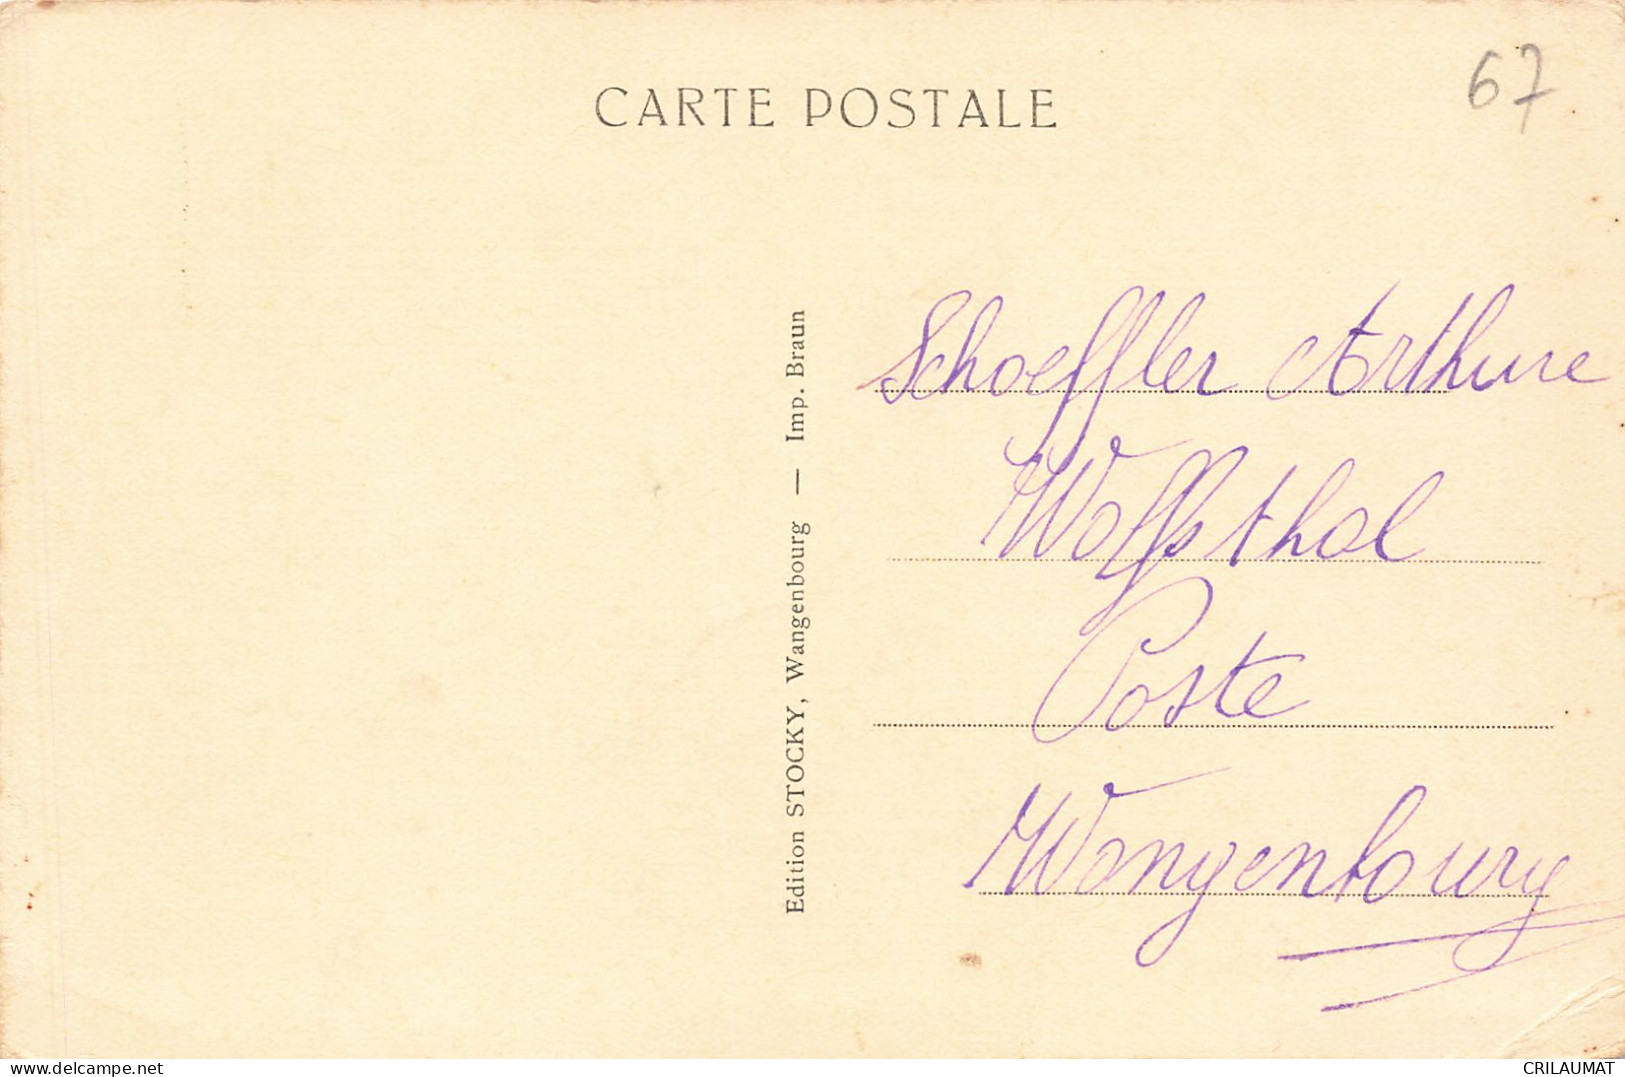 CARTE POSTALE
67
Edition STOCKY, Wangenbourg — Imp. Braun
Schoeffler Arthure
Wolffsthal
Poste
Wangenbourg
www.delcampe.net
CRILAUMAT